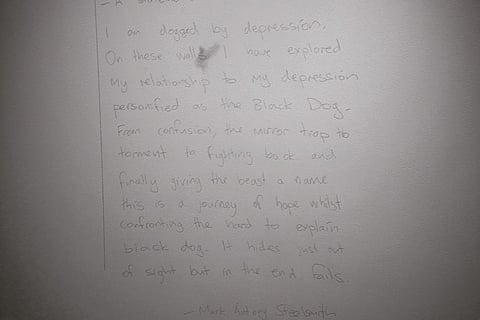 - A
I am dogged by depression.
On these walls I have explored
My relationship to my depression
personified as the Black Dog.
From confusion, the mirror trap to
torment to fighting back and
finally giving the beast a name
this is a journey of hope whilst
confronting the hard to explain
black dog. It hides just out
of sight but in the end fails.
- Mark Antony